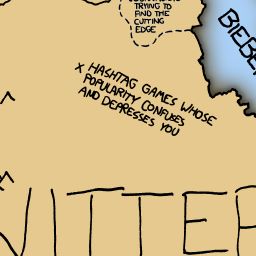 TRYING TO
FIND THE
CUTTING
EDGE
BIEBE
x HASHTAG GAMES WHOSE
POPULARITY CONFUSES
AND DEPRESSES YOU
WITTER